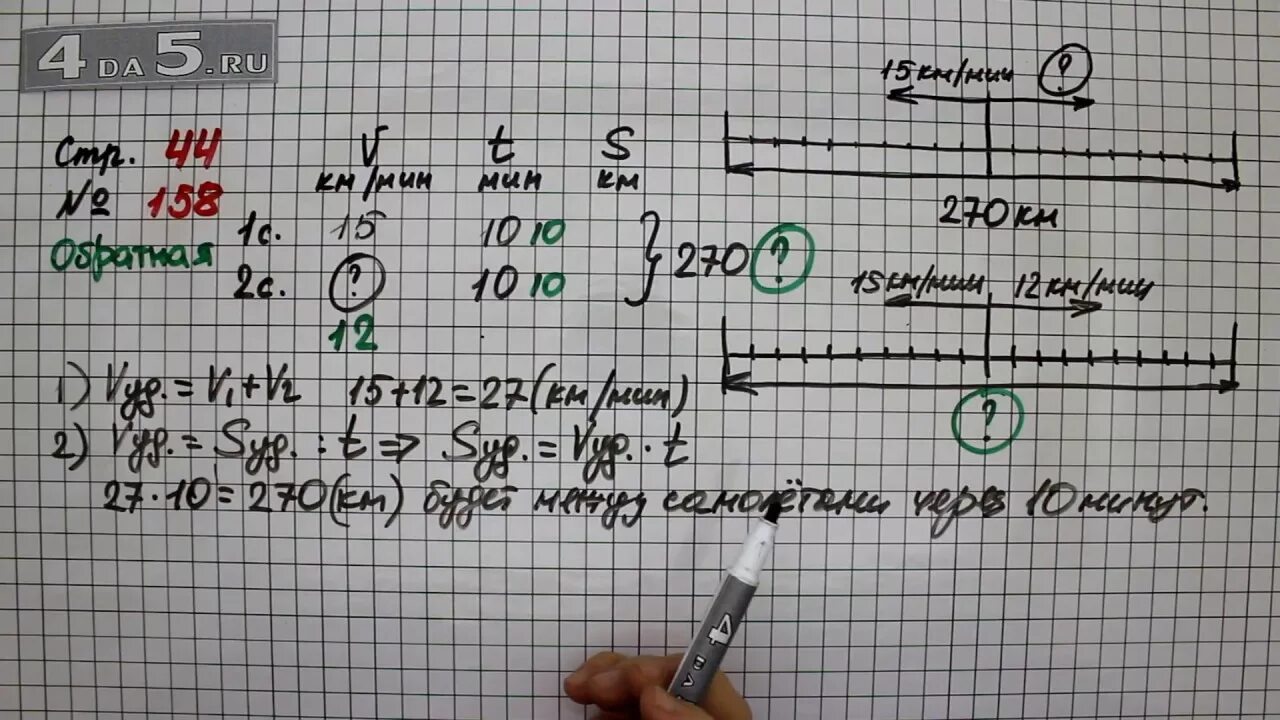 4DA5.RU
Стр. 44
№ 158
Обратная
V t S
км/мин мин км
1с. 15 10 10
2с. ? 10 10
} 270 ?
12
15км/мин ?
270 км
15км/мин 12км/мин
?
1) Vуд. = V1 + V2 15+12=27(км/мин)
2) Vуд. = Sуд. : t ⇒ Sуд. = Vуд. · t
27·10=270(км) будет между самолётами через 10 минут.
4
DA